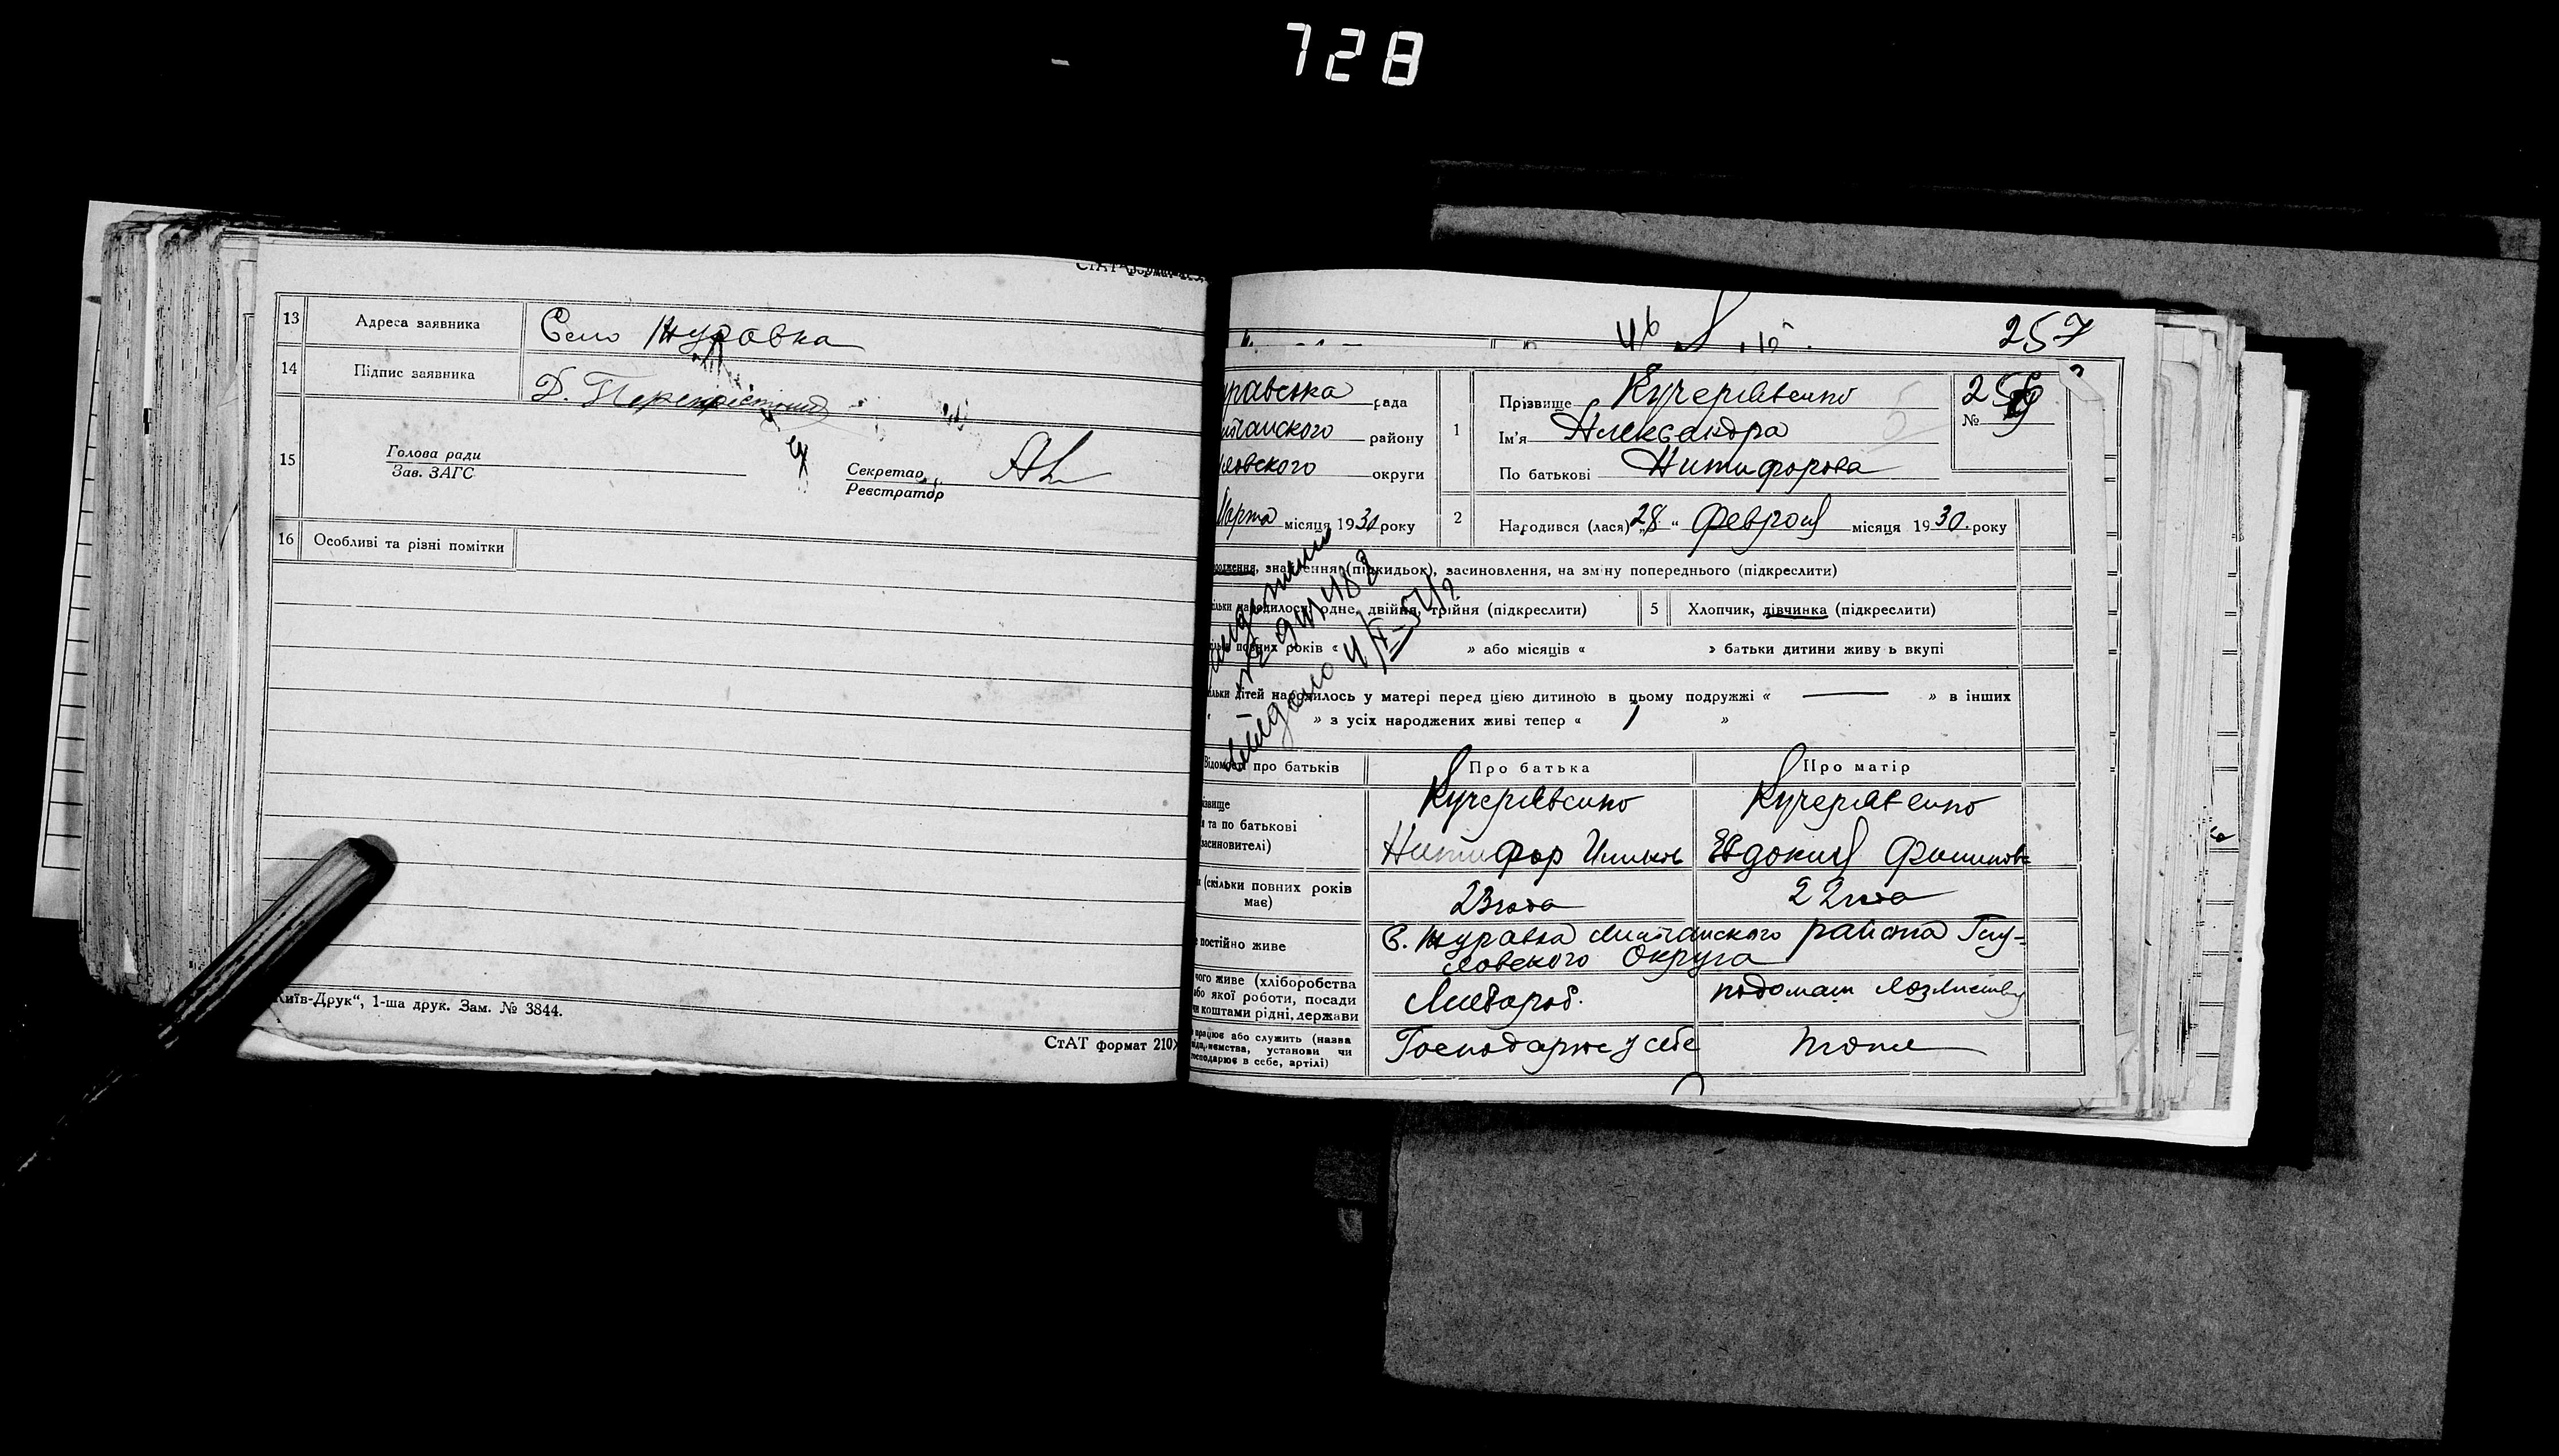 728
13 Адреса заявника Село Журавка
14 Підпис заявника Д.
15 Голова ради
Зав. ЗАГС
Секретар
Реєстратор
16 Особливі та різні помітки
Київ-Друк“, 1-ша друк. Зам. № 3844.
СтАТ формат 210
257
уравська рада
району
ловского округи
Марта місяця 1930 року
1 Прізвище Кучерявенко
Ім'я Александра
По батькові Никифорова
№
2 Народився (лася) „28“ Февраля місяця 1930 року
родження, знайдення (підкидьок), засиновлення, на зміну попереднього (підкреслити)
ільки народилося: одне, двійня, трійня (підкреслити) 5 Хлопчик, дівчинка (підкреслити)
повних років « » або місяців « » батьки дитини живуть вкупі
ільки дітей народилось у матері перед цією дитиною в цьому подружжі « — » в інших
« » з усіх народжених живі тепер « 1 »
Відомості про батьків Про батька Про матір
ізвище Кучерявенко Кучерявенко
та по батькові
засиновителі) Никифор Евдокия
(скільки повних років
має) 23 года 22 года
постійно живе С. Журавка района Глу-
ховского Округа
чого живе (хліборобства
або якої роботи, посади
чи коштами рідні, держави Хлебороб. по домаш
працює або служить (назва
підприємства, установи чи
господарює в себе, артілі) Господарює у себе тоже